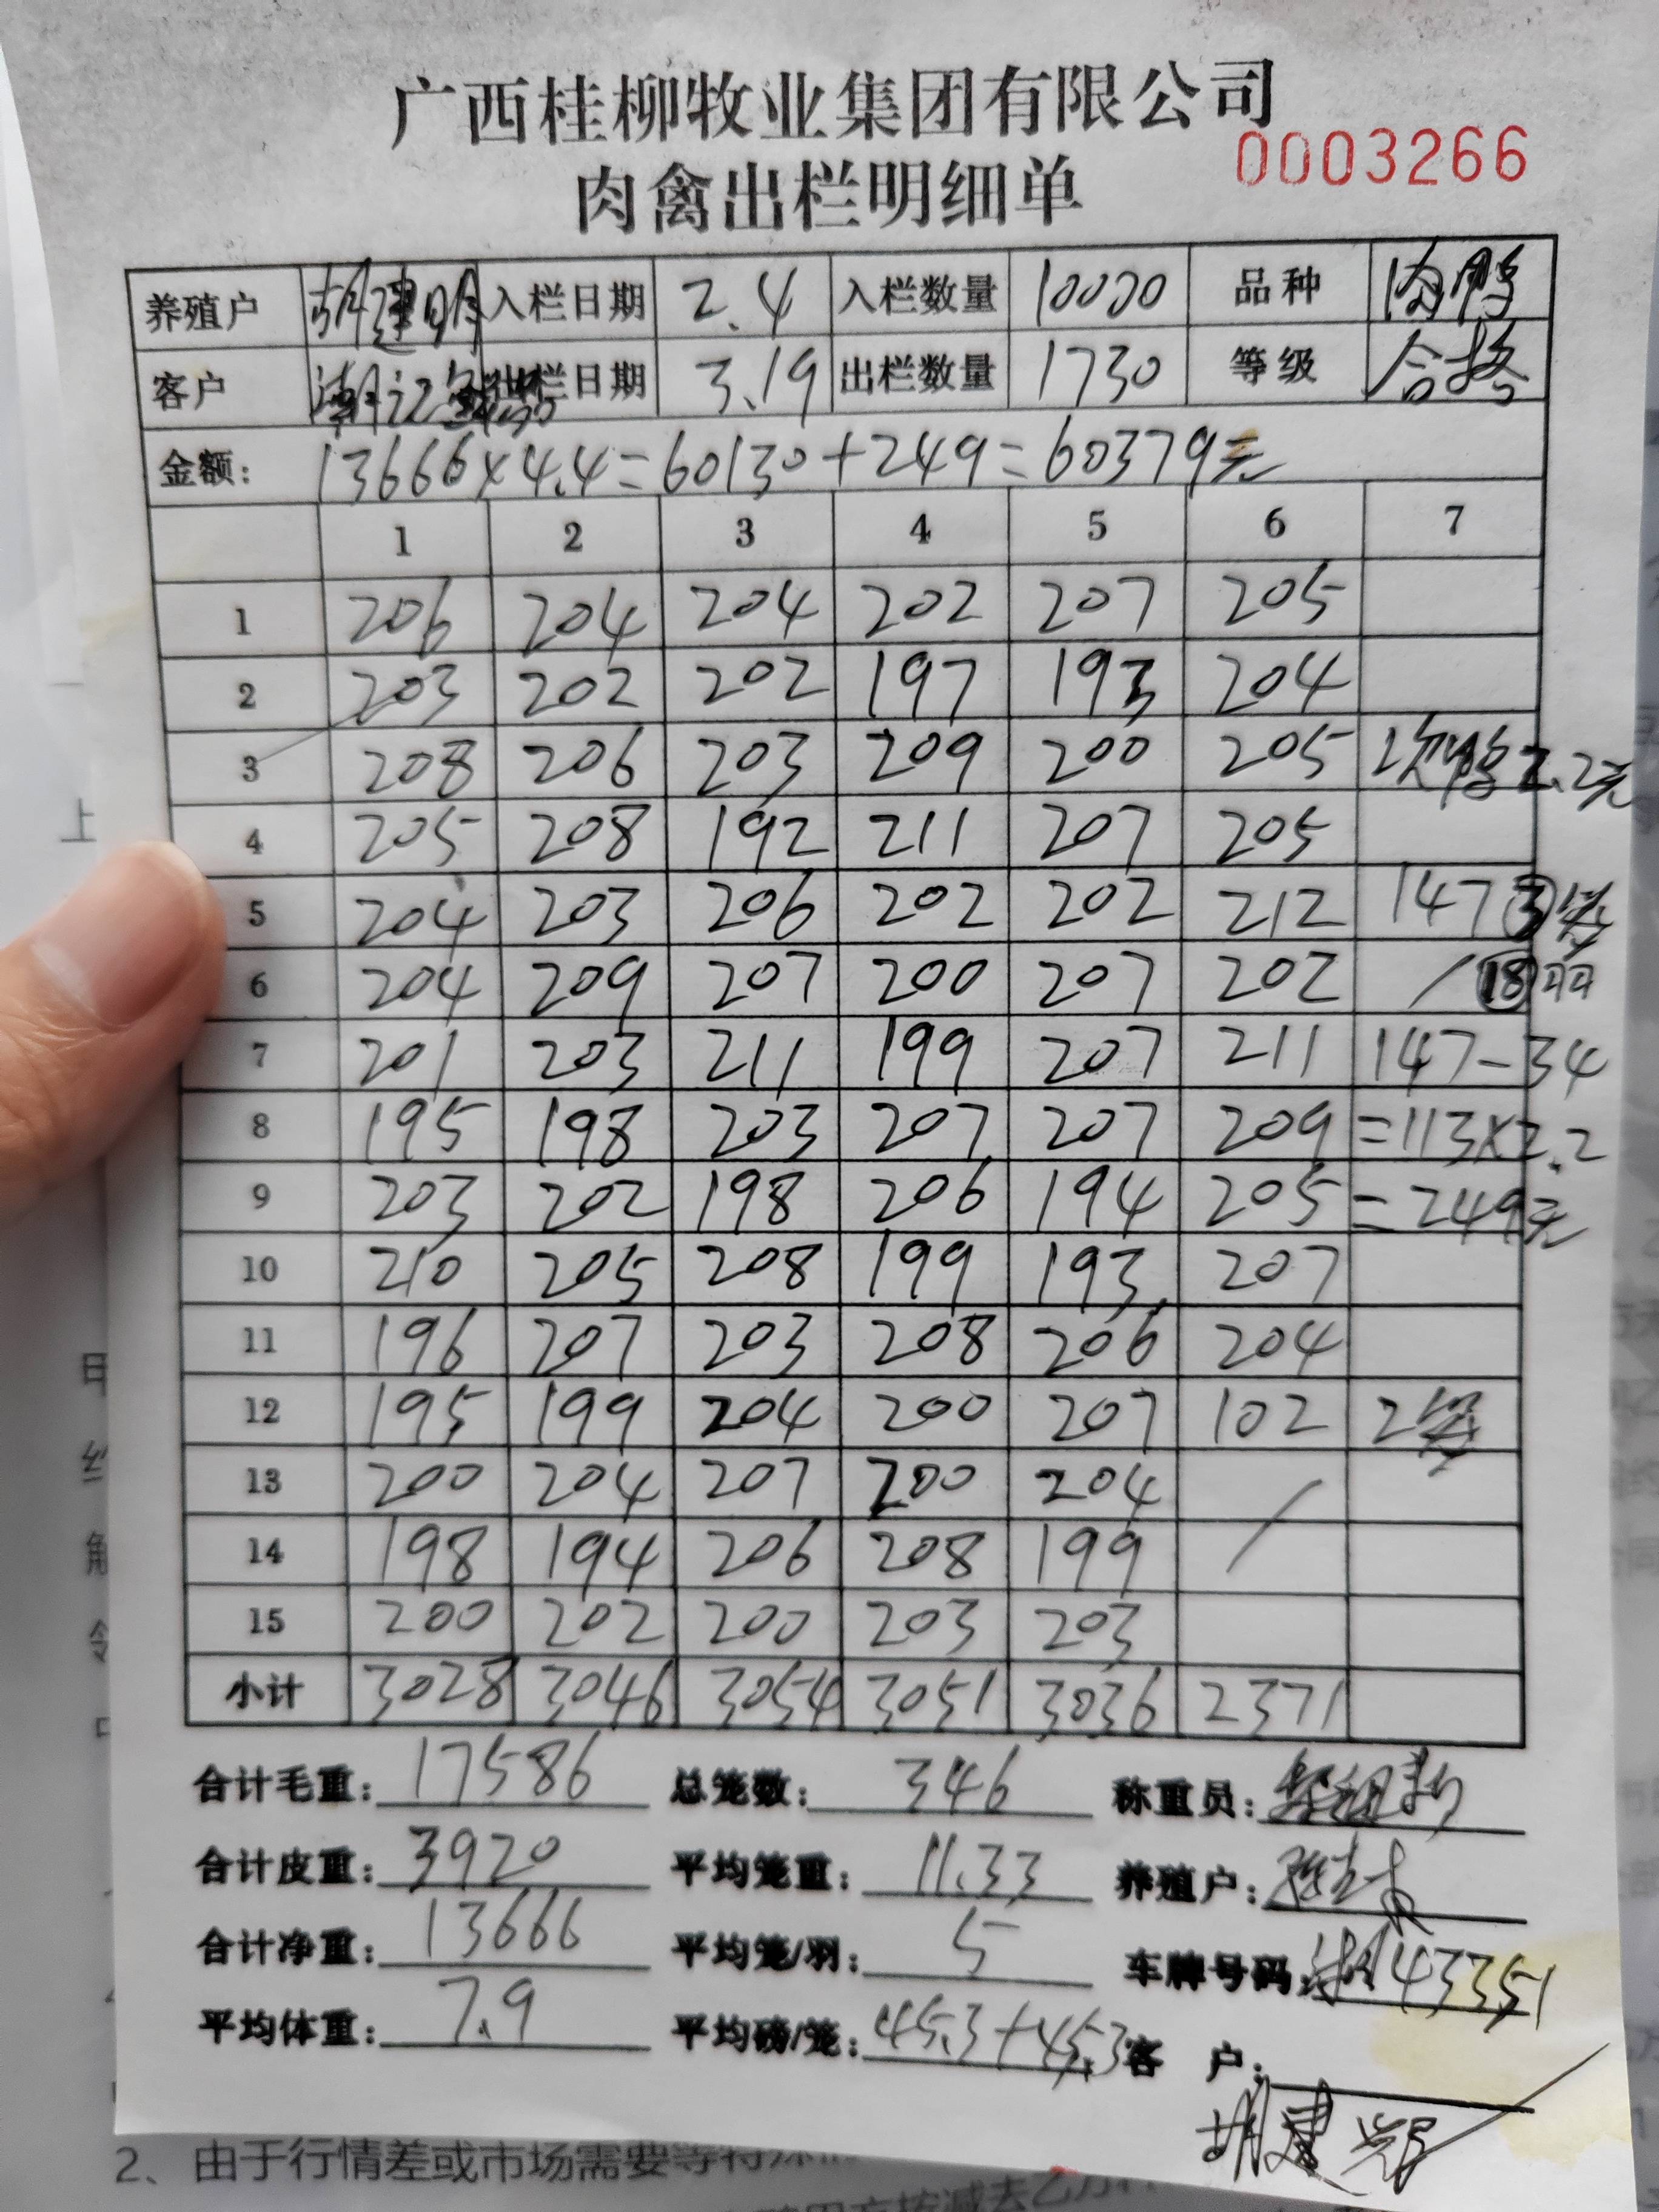 广西桂柳牧业集团有限公司
0003266
肉禽出栏明细单
养殖户 胡建明 入栏日期 2.4 入栏数量 10000 品种 鸭
客户 出栏日期 3.19 出栏数量 1730 等级 合格
金额: 13666×4.4=60130+249=60379元
1 2 3 4 5 6 7
1 206 204 204 202 207 205
2 203 202 202 197 193 204
3 208 206 203 209 200 205 次鸭2.2元
4 205 208 192 211 207 205
5 204 203 206 202 202 212 147 3笼
6 204 209 207 200 207 202 / 18羽
7 201 203 211 199 207 211 147-34
8 195 198 203 207 207 209 =113×2.2
9 203 202 198 206 194 205 =249元
10 210 205 208 199 193 207
11 196 207 203 208 206 204
12 195 199 204 200 207 102 2笼
13 200 204 207 200 204 /
14 198 194 206 208 199
15 200 202 200 203 203
小计 3028 3046 3054 3051 3036 2371
合计毛重: 17586 总笼数: 346 称重员:
合计皮重: 3920 平均笼重: 11.33 养殖户:
合计净重: 13666 平均笼/羽: 5 车牌号码: 43351
平均体重: 7.9 平均磅/笼: 45.3+45.3 客 户:
胡建
2、由于行情差或市场需要等特殊